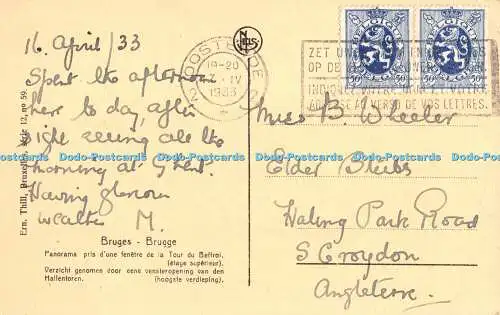 16 April /33
Spent the afternoon
here to day, after
sight seeing all the
morning at Ghent.
Having glorious
weather M.
Bruges - Brugge
Panorama pris d'une fenêtre de la Tour du Beffroi.
(étage supérieur).
Verzicht genomen door eene vensteropening van den
Hallentoren. (hoogste verdieping).
Ern. Thill, Bruxelles. Série 12, no 59.
NELS
OOSTENDE
19-20
IV
1933
BELGIQUE
BELGIË
50
50
ZET UW
OP DE
ADRESSE AU VERSO DE VOS LETTRES.
Miss B. Wheeler
Elder
Haling Park Road
S. Croydon
Angleterre.
Dodo-Postcards Dodo-Postcards Dodo-Postcards Dodo-Postcards